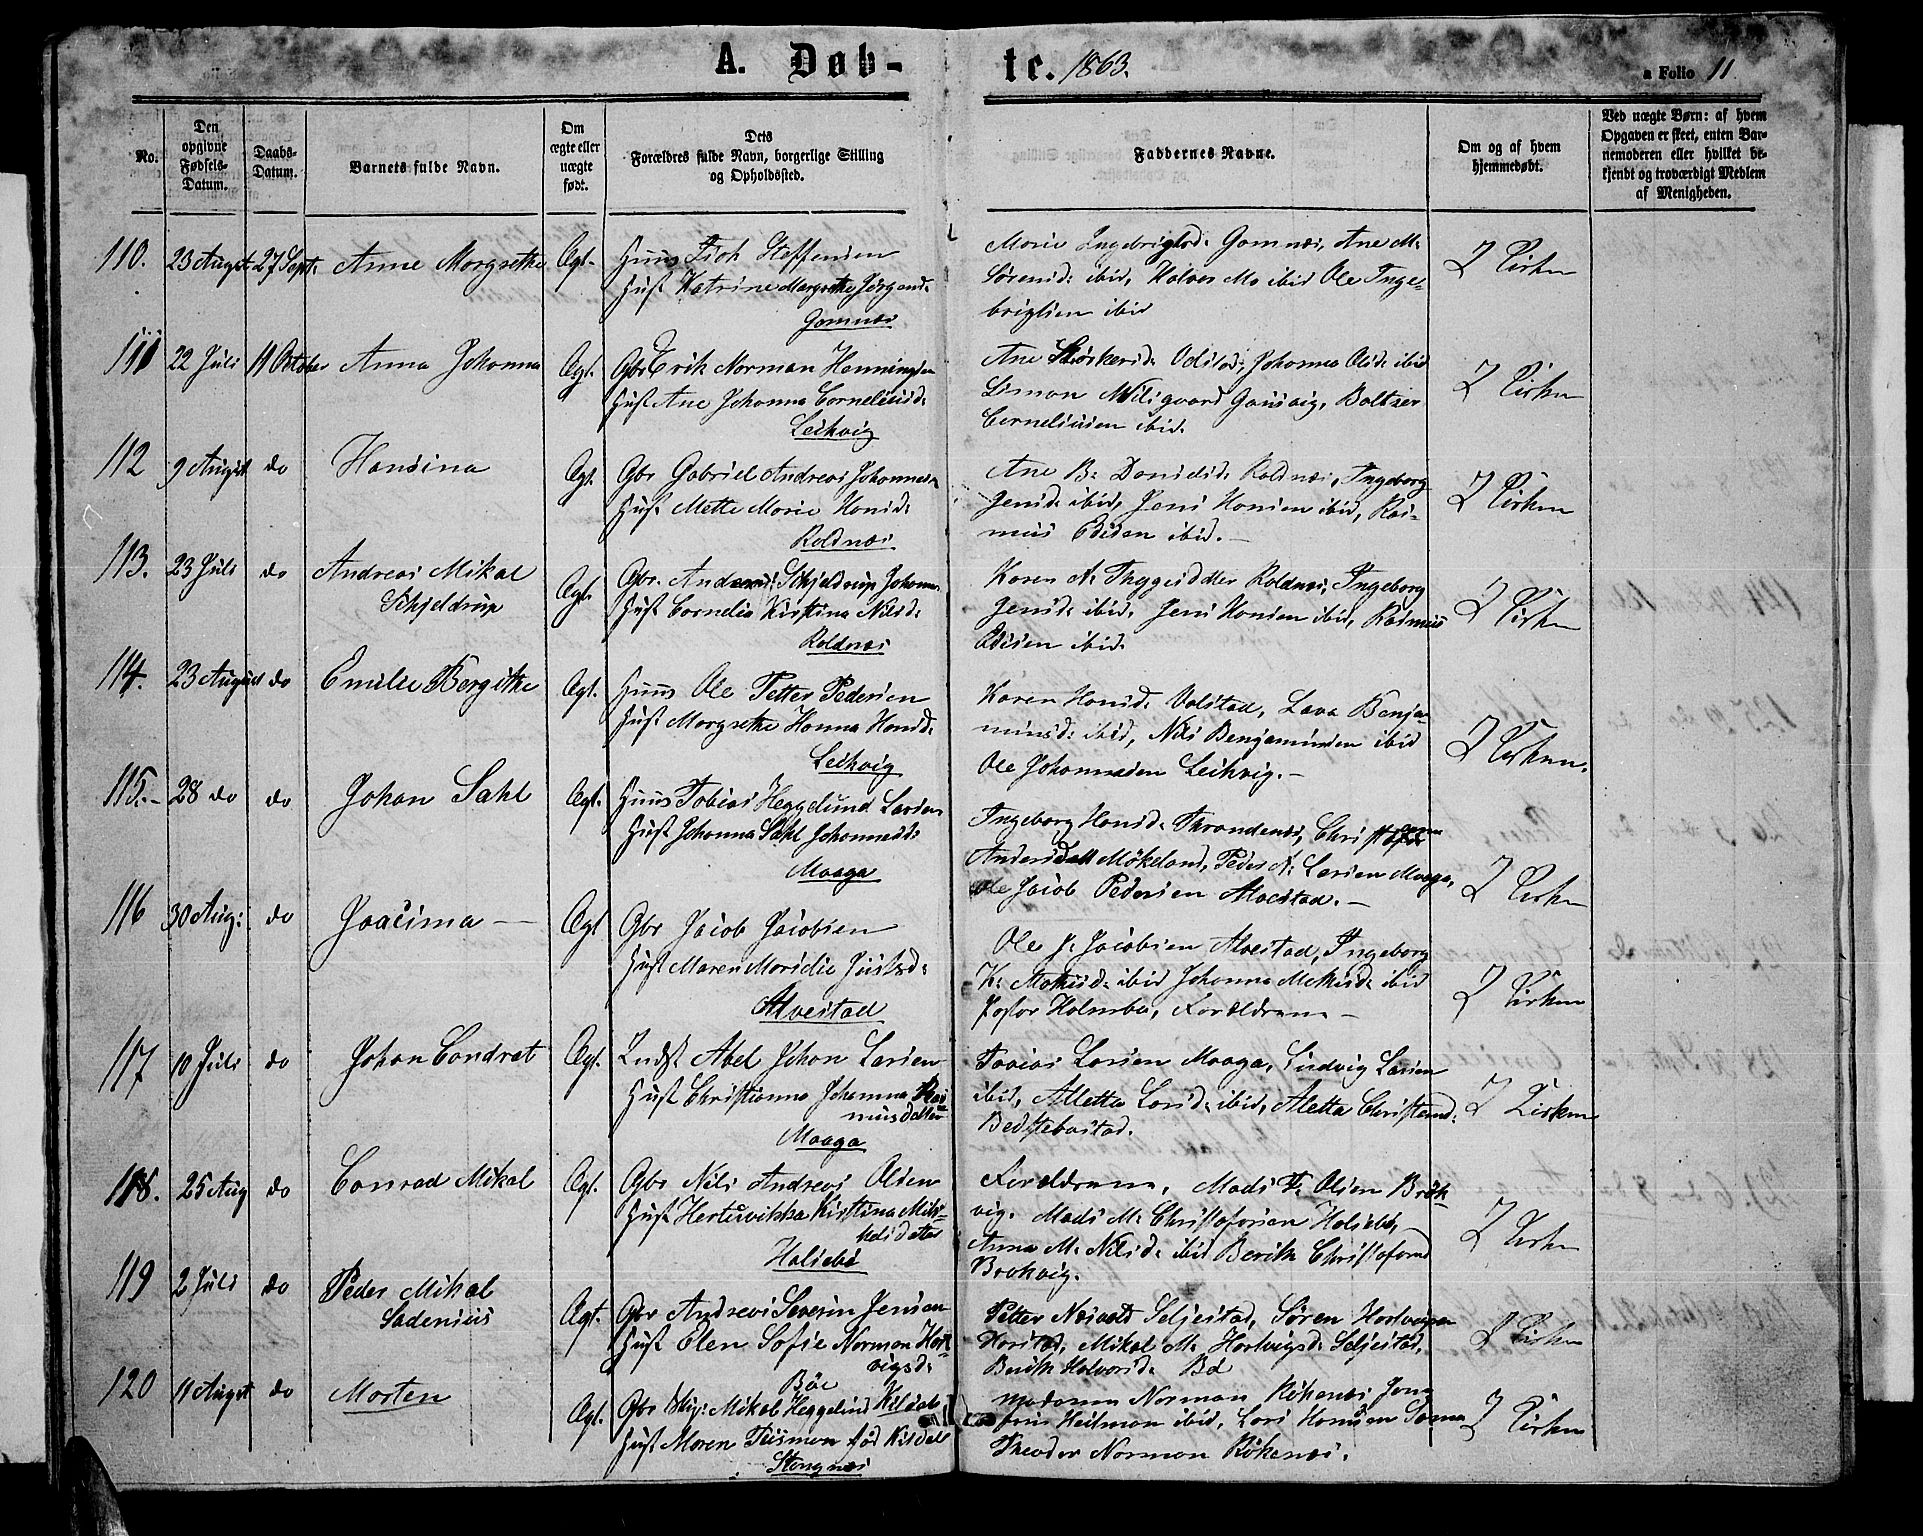 A. Døb-
te. 1863.
a Folio 11
No.
Den opgivne Fødsels-Datum.
Daabs-Datum.
Barnets fulde Navn.
Om ægte eller uægte født.
Dets Forældres fulde Navn, borgerlige Stilling og Opholdssted.
Faddernes Navne.
Om og af hvem hjemmedøbt.
Ved uægte Børn: af hvem Opgaven er skeet, enten Barnemoderen eller hvilket bekjendt og troværdigt Medlem af Menigheden.
110. 23 August 27 Sept. Anne Margrethe Ægt.
Huus Fich Steffensen
Hust Katrine Margrethe Jørgensd.
Gomnæs
Marie Ingebrigtsd. Gomnæs, Ane M.
Sørensd. ibid, Halvor Mo ibid Ole Inge-
brigtsen ibid
I Kirken
111 22 Juli 11 October Anna Johanna Ægt.
Gbr Erik Norman Henningsen
Hust Ane Johanna Corneliusd.
Leikvig
Johanna Olsd. ibid
Simon Gausvig, Baltzer
Corneliusen ibid.
I Kirken
112 9 August do Hansina Ægt.
Gbr Gabriel Andreas Johannesen
Hust Mette Marie Hansd.
Roldnæs
Ane B. Danielsd. Roldnæs, Ingeborg
Jensd. ibid, Jens Hansen ibid, Ras-
mus Edisen ibid. -
I Kirken
113. 23 Juli do Andreas Mikal
Schjeldrup
Ægt.
Gbr. Andreas Schjeldrup Johanns.
Hust Cornelia Kristina Nilsd.
Roldnæs
Karen A. Roldnæs, Ingeborg
Jensd. ibid, Jens Hansen ibid, Rasmus
Edisen ibid.
I Kirken
114. 23 August do Emilie Bergithe Ægt.
Huus Ole Petter Pedersen
Hust Margrethe Hanna Hansd.
Leikvig
Karen Hansd. Volstad, Lava Benja-
minsd. ibid, Nils Benjaminsen ibid
Ole Johannesen Leikvig. -
I Kirken.
115.- 28 do do Johan Dahl Ægt.
Huus Tobias Heggelund Larsen
Hust Johanna Dahl Johannesd.
Maaga
Ingeborg Hansd. Throndenæs,
Andersdatt Mökeland, Peder N. Larsen Maaga,
Ole Jacob Pedersen Alvestad. -
I Kirken
116 30 Aug: do Joacima - Ægt
Gbr Jacob Jacobsen
Hust Maren Marselie Justsd.
Alvestad
Ole J. Jacobsen Alvestad, Ingeborg
K. ibid Johanna ibid
Pastor Holmboe, Forældrene -
I Kirken
117 10 Juli do Johan Condrat Ægt.
Indst Abel Johan Larsen
Hust Christianna Johanna Ras-
musdatter
Maaga
Tobias Larsen Maaga, Ludvig Larsen
ibid, Alletta Larsd. ibid, Aletta Christensd.
I Kirken
118. 25 Aug do Conrad Mikal Ægt.
Gbr Nils Andreas Olsen
Hust Hertuvikka Kristina Mik-
kelsdatter
Halsebø
Forældrene, Mads T. Olsen Brok-
vig. Mads M. Christofersen Halsebø,
Anna M. Nilsd. ibid Berith Christofersd
Brokvig.
I Kirken
119 2 Juli do Peder Mikal
Sadenius
Ægt.
Gbr Andreas Severin Jensen
Hust Elen Sofie Norman Hart-
vigsd.
Böe
Petter Seljestad, Sören Hartvigsen
Harstad, Mikal M. Hartvigsd. Seljestad,
Berith Halvorsd. Bö
I Kirken
120 11 August do Morten Ægt.
Gbr Skip: Mikal Heggelund Kildal
Hust Maren född Kildal
Stangnæs
Madama Norman Rökenæs
Heitman ibid, Lars Hansen Sama
Theodor Norman Rökenæs.
I Kirken